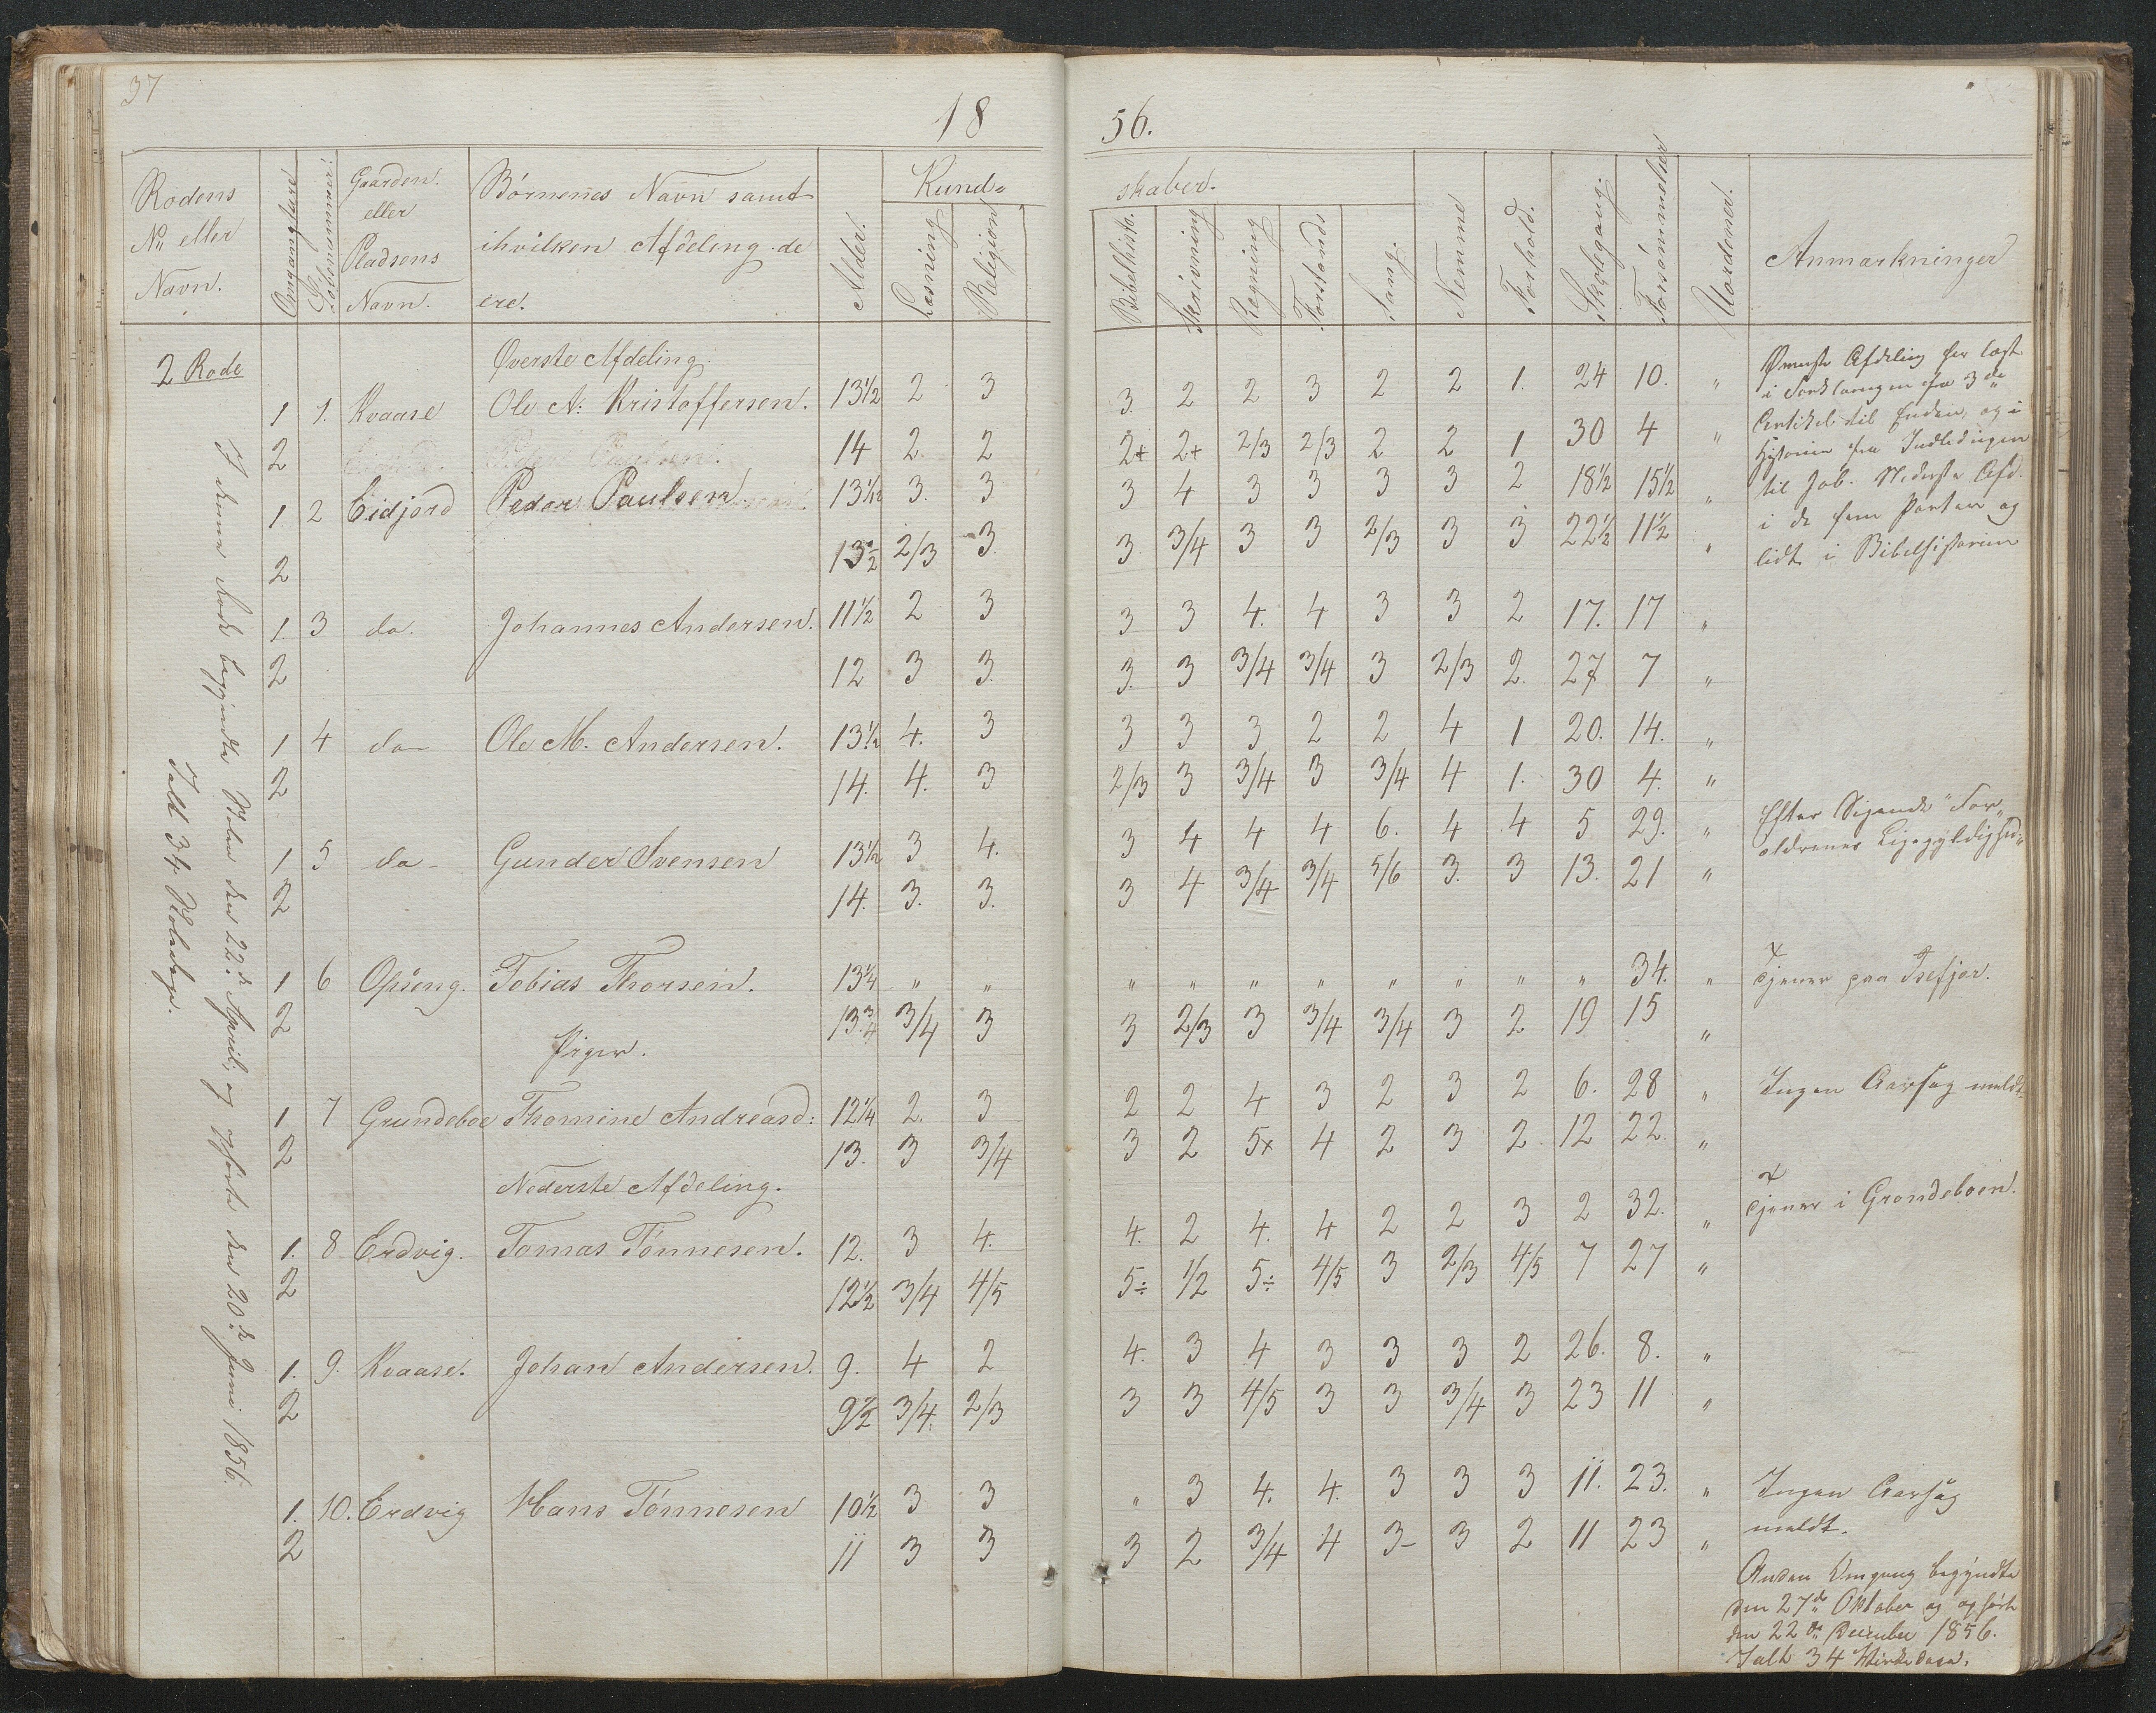 37
18 56.
Rodens
No eller
Navn.
Omgangsture
Løbenummer.
Gaarden.
eller
Pladsens
Navn.
Børnenes Navn samt
ihvilken Afdeling de
ere.
Alder.
Kund=
skaber.
Læsning
Religion
Bibelhisto.
Skrivning
Regning
Forstands
Sang.
Nemme
Forhold.
Skolegang.
Forsømmelser
Uordener.
Anmærkninger
2 Rode
Øverste Afdeling.
1 1. Kvaase Ole N: Kristoffersen. 13½ 2 3 3. 2 2 3 2 2 1. 24 10. "
2 14 2 2 2+ 2+ 2/3 2/3 2 2 1 30 4 "
1. 2 Eidjord Peder Paulsen 13 1/12 3. 3 3 4 3 3 3 3 2 18½ 15½ "
2 13½ 2/3 3. 3. 3/4 3 3 2/3 3 3 22½ 11½ "
1. 3 do. Johannes Andersen. 11½ 2 3 3 3 4. 4 3 3 2 17. 17 "
2 12 3 3. 3. 3 3/4 3/4 3 2/3 2. 27 7 "
1 4 do Ole M. Andersen. 13½ 4. 3 3 3 3 2 2 4 1 20. 14. "
2 14. 4. 3 2/3 3 3/4 3 3/4 4 1. 30 4. "
1 5 do Gunder Svensen 13½ 3 4. 3 4 4 4 6. 4 4 5 29. "
2 14. 3. 3. 3 4 3/4 3/4 5/6 3. 3 13. 21 "
1 6 Opseng. Tobias Thorsen. 13¼ " " " " " " " " " " 34. "
2 13¾ 3/4 3 3 2/3 3 3/4 3/4 3 2 19 15 "
Piger.
1 7 Grundeboe Thomine Andreasd: 12¼ 2. 3 2 2 4 3 2 3 2 6. 28 "
2 13. 3 3/4 3 2 5x 4 2 3 2. 12 22. "
Nederste Afdeling.
1. 8 Erdvig. Tomas Tønnesen. 12. 3 4. 4. 2 4. 4 2 2 3 2 32. "
2 12½ 3/4 4/5 5÷ 1/2 5÷ 4/5 3 2/3 4/5 7 27 "
1. 9. Kvaase. Johan Andersen. 9. 4 2 4. 3 4 3 3 3 2 26. 8. "
2 9½ 3/4. 2/3 3 3 4/5 3 3 3/4 3 23 11 "
1. 10. Erdvig Hans Tønnesen 10½ 3 3 " 3 4. 4. 3 3 3 11. 23. "
2 11 3 3 3 2 3/4 4 3- 3 2 11 23 "
Øverste Afdeling har læst
i Forklaringen fra 3die
Artikel til Enden, og i
Historien fra Indledningen
til Job. Nederste Afd.
i de fem Parter og
lidt i Bibelhistorien
Efter Sigende "For-
ældrenes Ligegyldighed"
Tjener paa Isefjær.
Ingen Aarsag meldt.
Tjener i Grondeboen.
Ingen Aarsag
meldt.
Anden Omgang begyndte
den 27de Oktober og ophørte
den 22de December 1856.
Ialt 34 Virkedage.
I denne Rode begyndte Skolen den 22de April, og ophørte den 20de Juni 1856.
Ialt 34 Skoledage.